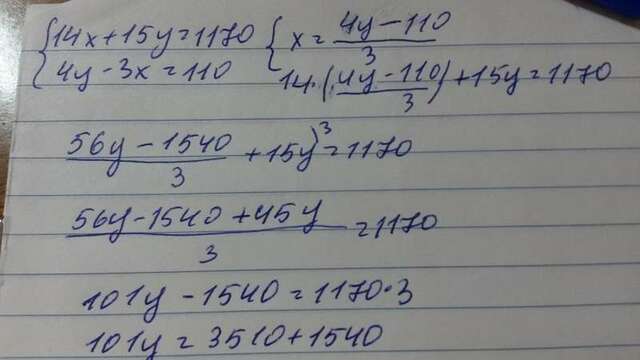 {14x+15y=1170 {x=4y-110/3
{4y-3x=110 14·(4y-110/3)+15y=1170
56y-1540/3 +15y⁾³=1170
56y-1540+45y/3 =1170
101y-1540=1170·3
101y=3510+1540